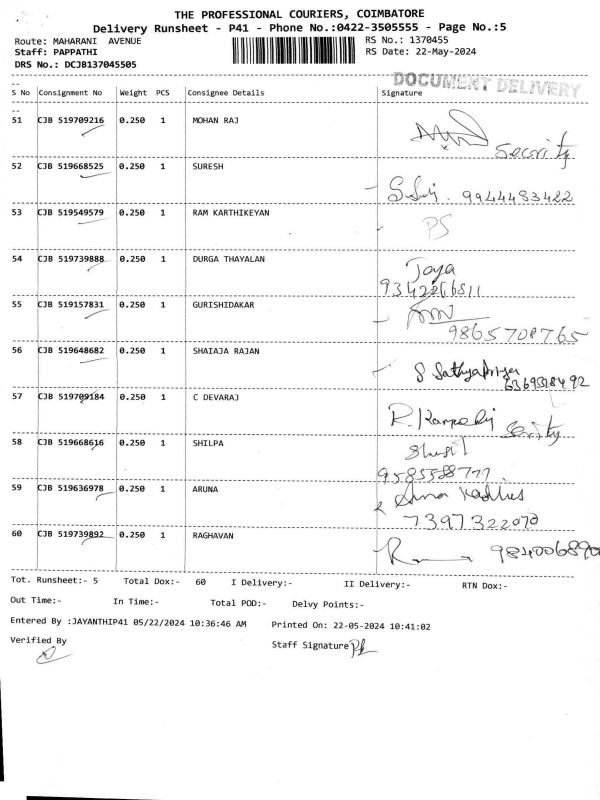 THE PROFESSIONAL COURIERS, COIMBATORE
Delivery Runsheet - P41 - Phone No.:0422-3505555 - Page No.:5
Route: MAHARANI AVENUE RS No.: 1370455
Staff: PAPPATHI RS Date: 22-May-2024
DRS No.: DCJB137045505
DOCUMENT DELIVERY
S No Consignment No Weight PCS Consignee Details Signature
51 CJB 519709216 0.250 1 MOHAN RAJ
Security
52 CJB 519668525 0.250 1 SURESH
9944483422
53 CJB 519549579 0.250 1 RAM KARTHIKEYAN
PS
54 CJB 519739888 0.250 1 DURGA THAYALAN Jaya
55 CJB 519157831 0.250 1 GURISHIDAKAR
9865708765
56 CJB 519648682 0.250 1 SHAIAJA RAJAN
S Sathyapriya
57 CJB 519709184 0.250 1 C DEVARAJ
58 CJB 519668616 0.250 1 SHILPA
59 CJB 519636978 0.250 1 ARUNA
7397322070
60 CJB 519739892 0.250 1 RAGHAVAN
Tot. Runsheet:- 5 Total Dox:- 60 I Delivery:- II Delivery:- RTN Dox:-
Out Time:- In Time:- Total POD:- Delvy Points:-
Entered By :JAYANTHIP41 05/22/2024 10:36:46 AM Printed On: 22-05-2024 10:41:02
Verified By Staff Signature